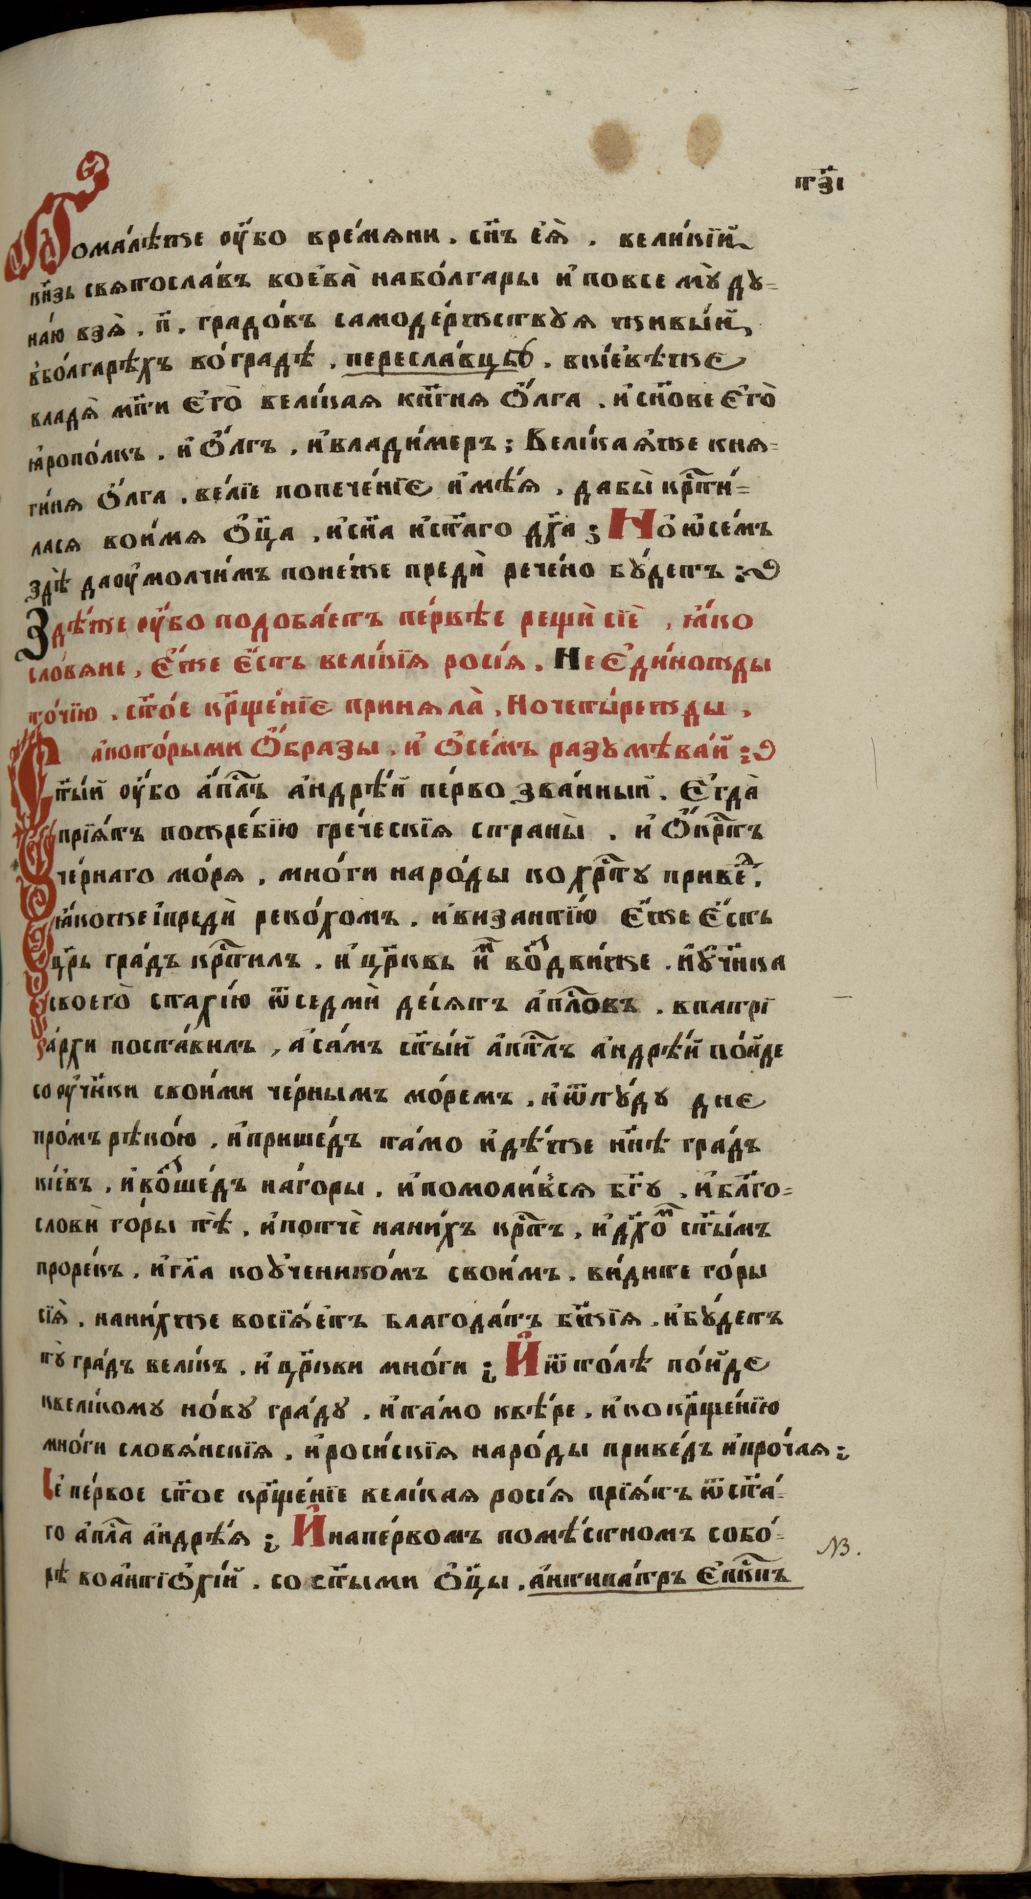 тз҃і
Помалѣже ᲂу҆́бо вре́мѧни . сн҃ъ е҆ѧ̀ . вели́кїй
кн҃зь свѧтосла́въ воева̀ набо́лгары и҆ повсе мꙋ̀ дꙋ-
на́ю взѧ̀ . п҃ . градо́въ самоде́ржствꙋѧ живы́й
вбо́лгарѣхъ во́градѣ . пересла́вцѣ . вкі́евѣже
владѧ̀ мт҃и є҆го̀ вели́каѧ кн҃гнѧ Ѻ҆́лга . и҆ сн҃ове є҆го̀
ꙗ҆ропо́лкъ . и҆ Ѻ҆́лгъ . и҆влади́меръ ; Вели́каѧ́же кнѧ-
ги́нѧ Ѻ҆́лга . ве́лїе попече́нїе и҆мѣ́ѧ . дабы̀ крⷭ҇ти́-
ласѧ вои́мѧ Ѻ҆ц҃а . и҆сн҃а и҆ст҃аго дх҃а ; Но ѡ҆се́мъ
здѣ̀ даᲂу҆молчи́мъ поне́же предѝ рече́но бꙋ́детъ :
Здѣ́же ᲂу҆́бо подоба́етъ пе́рвѣе рещѝ сїѐ , ꙗ҆́ко
слове́не , є҆́же є҆́сть вели́кїѧ росі́ѧ . Не є҆ди́ножды
то́чїю . ст҃о́е крⷳ҇ще́нїе принѧла̀ , Но четы́режды ,
а҆кото́рыми Ѻ҆́бразы . и҆ ѡ҆се́мъ разꙋмѣва́й :
Ст҃ы́й ᲂу҆́бо а҆пⷭ҇лъ а҆ндре́й пе́рво зва́нный . Є҆гда̀
прїѧ́тъ пожре́бїю гре́ческїѧ страны̀ . и҆ Ѻ҆крⷭ҇тъ
че́рнаго мо́рѧ . мно́ги наро́ды ко хрⷭ҇тꙋ приве́ⷣ .
ꙗ҆́коже і҆предѝ реко́хомъ . и҆византі́ю є҆́же є҆́сть
цр҃ь гра́дъ крⷭ҇тилъ . и҆ цр҃ковь и҆ⷨ воⷥдви́же . и҆ᲂу҆чн҃ка
своего̀ стахі́ю ѿседми́ десѧ́тъ а҆пⷭ҇ловъ . впатрї
а́рхи поста́вилъ , а҆са́мъ ст҃ы́й а҆пⷭ҇лъ а҆ндре́й по́йде
со ᲂу҆чн҃ки свои́ми че́рнымъ мо́ремъ . и҆ѿтꙋ́дꙋ дне
про́мъ рѣко́ю . и҆прише́дъ та́мо и҆дѣ́же нн҃ѣ гра́дъ
кі́евъ . и҆воⷥше́дъ наго́ры . и҆помоли́всѧ бг҃ꙋ . и҆блг҃о-
словѝ го́ры тѣ̀ . и҆потчѐ нани́хъ крⷭ҇тъ , и҆дх҃оⷨ ст҃ы́мъ
проре́къ . и҆гл҃а коᲂу҆ченико́мъ свои́мъ . ви́дите го́ры
сїѧ̀ . нани́хже восїѧ́етъ благода́тъ бж҃їѧ . и҆бꙋ́детъ
тꙋ̀ гра́дъ вели́къ . и҆ цр҃кви мно́ги ; И҆ ѿто́лѣ по́йде
квели́комꙋ но́вꙋ гра́дꙋ . и҆та́мо квѣ́ре . и҆ко крⷳ҇ще́нїю
мно́ги словѧ́нскїѧ . и҆роси́скїѧ наро́ды приве́дъ и҆про́чаѧ ;
Се́ пе́рвое ст҃ое крⷳ҇ще́нїе вели́каѧ росі́ѧ прїѧ́тъ ѿст҃а́-
го а҆пⷭ҇ла а҆ндре́ѧ ; И҆ напе́рвомъ помѣ́стномъ собо́-
рѣ во а҆нтїѻхі́й . со ст҃ыми Ѻ҆ц҃ы . а҆нтипа́тръ Є҆пⷭ҇кпъ
NB.